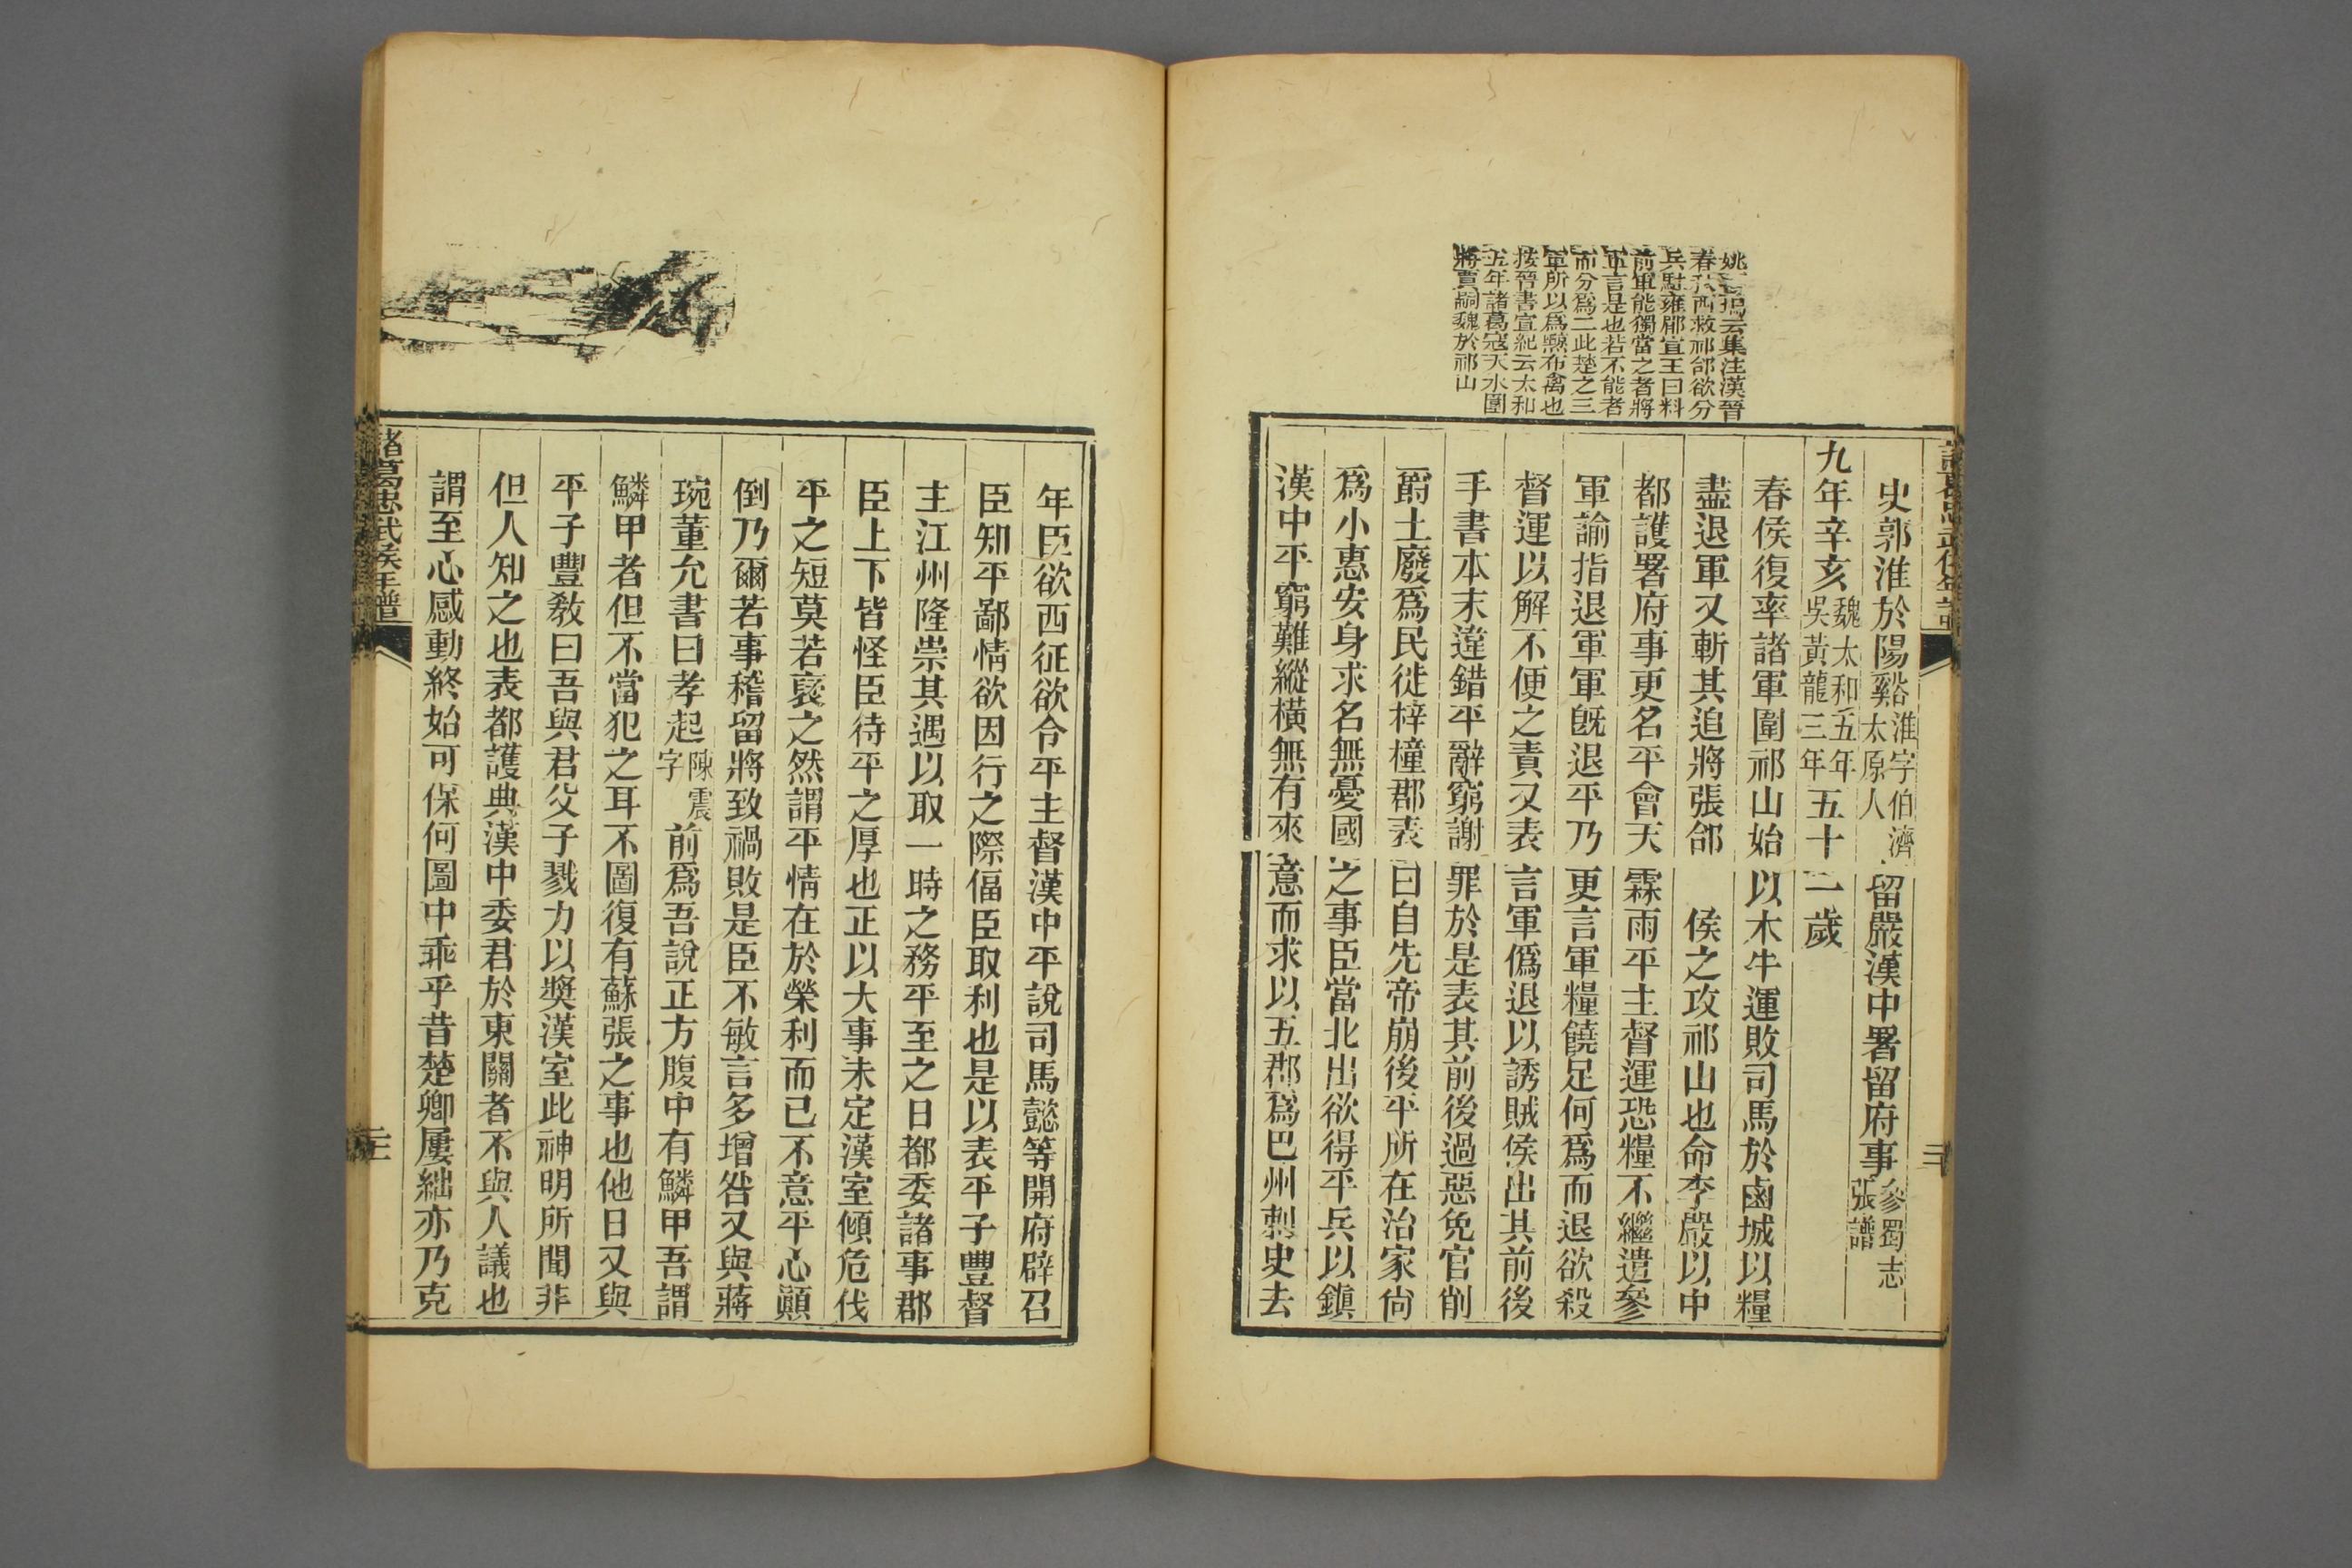 姚云集注漢晉
春秋西救祁郃欲分
兵駐雍郿宣王曰料
前軍能獨當之者將
軍言是也若不能者
而分爲二此楚之三
軍所以爲黥布禽也
按晉書宣紀云太和
五年諸葛寇天水圍
將賈嗣魏於祁山
史郭淮於陽谿淮字伯濟太原人留嚴漢中署留府事參蜀志張譜
九年辛亥魏太和五年吳黃龍三年五十二歲
春侯復率諸軍圍祁山始以木牛運敗司馬於鹵城以糧
盡退軍又斬其追將張郃 侯之攻祁山也命李嚴以中
都護署府事更名平會天霖雨平主督運恐糧不繼遣參
軍諭指退軍軍旣退平乃更言軍糧饒足何爲而退欲殺
督運以解不便之責又表言軍僞退以誘賊侯出其前後
手書本末違錯平辭窮謝罪於是表其前後過惡免官削
爵土廢爲民徙梓橦郡表曰自先帝崩後平所在治家尙
爲小惠安身求名無憂國之事臣當北出欲得平兵以鎭
漢中平窮難縱橫無有來意而求以五郡爲巴州刺史去
諸葛忠武侯年譜
年臣欲西征欲令平主督漢中平說司馬懿等開府辟召
臣知平鄙情欲因行之際偪臣取利也是以表平子豐督
主江州隆崇其遇以取一時之務平至之日都委諸事郡
臣上下皆怪臣待平之厚也正以大事未定漢室傾危伐
平之短莫若襃之然謂平情在於榮利而已不意平心顚
倒乃爾若事稽留將致禍敗是臣不敏言多增咎又與蔣
琬董允書曰孝起陳震字前爲吾說正方腹中有鱗甲吾謂
鱗甲者但不當犯之耳不圖復有蘇張之事也他日又與
平子豐敎曰吾與君父子戮力以奬漢室此神明所聞非
但人知之也表都護典漢中委君於東關者不與人議也
謂至心感動終始可保何圖中乖乎昔楚卿屢絀亦乃克
諸葛忠武侯年譜